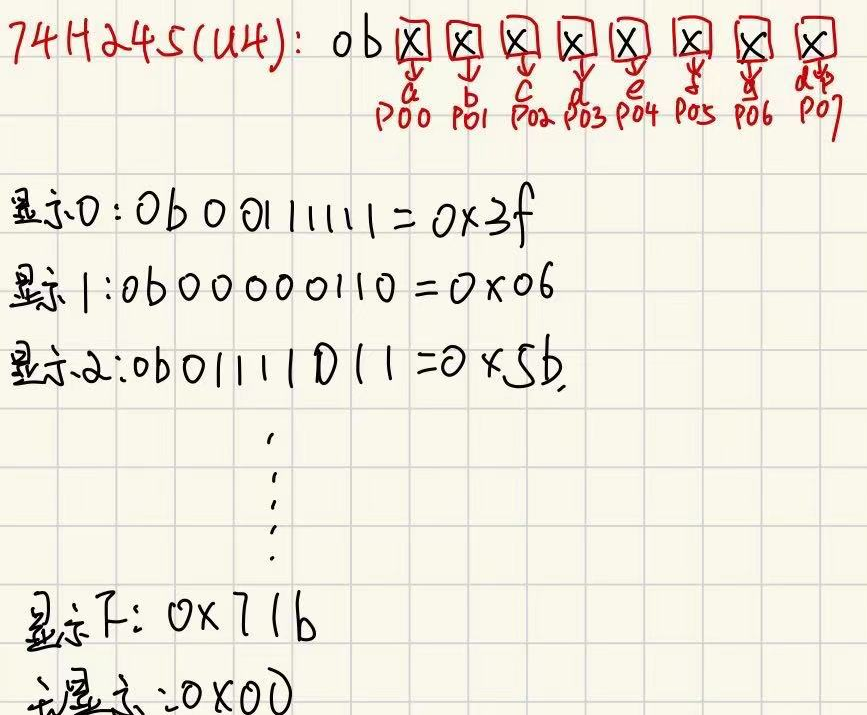 74H245(U4): 0b X X X X X X X X
a b c d e f g dp
P00 P01 P02 P03 P04 P05 P06 P07
显示0:0b00111111=0x3f
显示1:0b00000110=0x06
显示2:0b01111011=0x5b
显示F:0x71b
:0x00